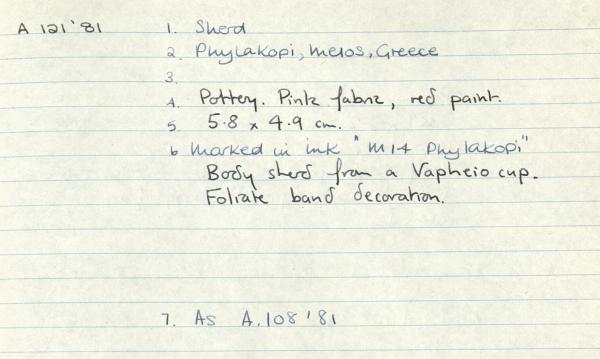 A 121'81
1. Sherd
2. Phylakopi, Melos, Greece
3.
4. Pottery. Pink fabric, red paint.
5 5.8 x 4.9 cm.
6 Marked in ink "M14 Phylakopi"
Body sherd from a Vapheio cup.
Foliate band decoration.
7. As A.108'81